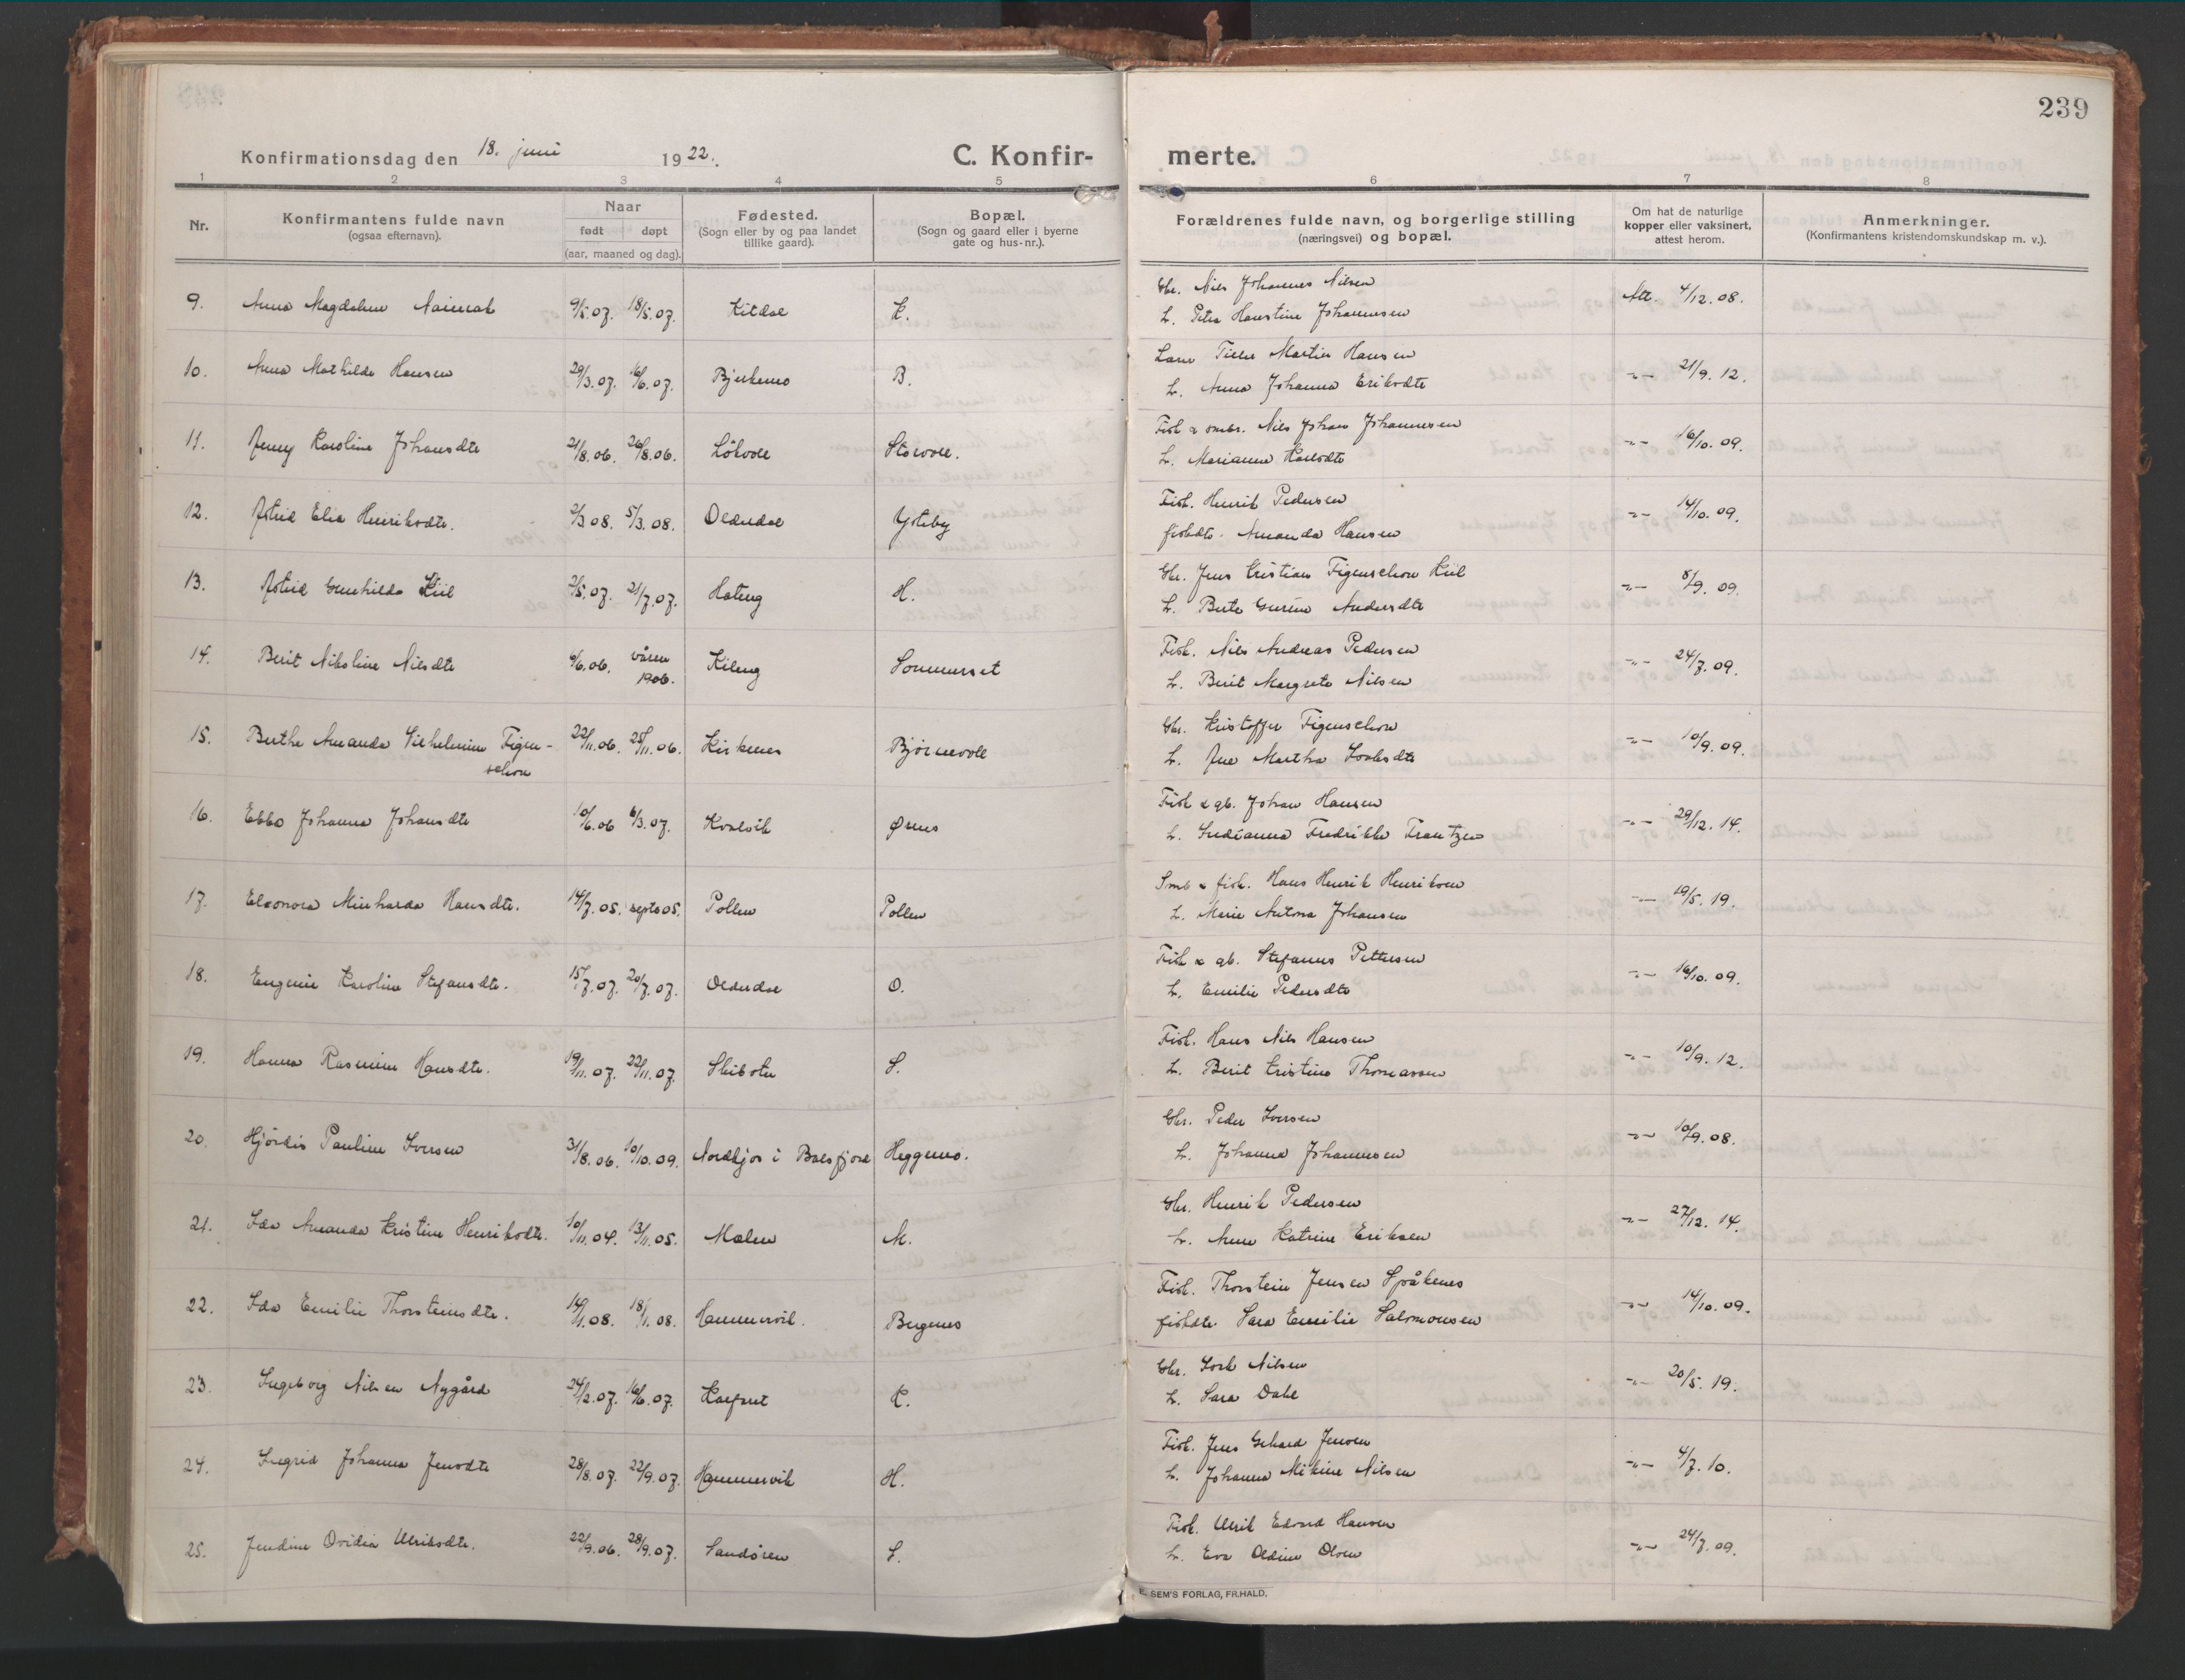 239
Konfirmationsdag den 18. juni 1922.
C. Konfir-
merte.
1 2 3 4 5 6 7 8
Nr.
Konfirmantens fulde navn
(ogsaa efternavn).
Naar
født døpt
(aar, maaned og dag).
Fødested.
(Sogn eller by og paa landet
tillike gaard).
Bopæl.
(Sogn og gaard eller i byerne
gate og hus-nr.).
Forældrenes fulde navn, og borgerlige stilling
(næringsvei) og bopæl.
Om hat de naturlige
kopper eller vaksinert,
attest herom.
Anmerkninger.
(Konfirmantens kristendomskundskap m. v.).
9. Anna Magdalene 9/5.07. 18/5.07. Kitdal K.
Gbr. Nils Johannes Nilsen
H. Petra Hanstine Johannesen
Att. 4/12.08.
10. Anna Mathilde Hansen 29/3.07. 16/6.07. Bjerkemo B.
Martin Hansen
H. Anna Johanna Eriksdte
-"- 21/9.12.
11. Jenny Karoline Johansdte 21/8.06. 26/8.06. Løkvoll Storvoll.
Fisk & smbr. Nils Johan Johannesen
H. Marianne Karlsdte
-"- 16/10.09.
12. Astrid Elia Henriksdte. 2/3.08. 5/3.08. Olderdal Yteby
Fisk. Henrik Pedersen
fiskdte. Amanda Hansen
-"- 14/10.09.
13. Astrid Gunhilda Kiil 2/5.07. 21/7.07. Hateng H.
Gbr. Jens Kristian Figenschou Kiil
H. Berte Gurine Andersdte
-"- 8/9.09.
14. Berit Nikoline Nilsdte 9/6.06. våren
1906. Kileng Sommerset
Fisk. Nils Andreas Pedersen
H. Berit Margrete Nilsen
-"- 24/7.09.
15. Berthe Amanda Vilhelmine Figen-
schou 22/11.06. 25/11.06. Kirkenes Bjørnevoll
Gbr. Kristoffer Figenschou
H. Ane Martha Isaksdte
-"- 10/9.09.
16. Ebba Johanna Johansdte 10/6.06 6/3.07. Kvalvik Ørnes
Fisk & gb. Johan Hansen
H. Indianna Fredrikke Frantzen
-"- 29/12.14.
17. Eleonora Minharda Hansdte. 14/7.05. septs 05. Pollen Pollen
Smb & fisk. Hans Henrik Henriksen
H. Marie Antona Johansen
-"- 19/5.19.
18. Eugenie Karoline Stefansdte. 15/7.07. 20/7.07. Olderdal O.
Fisk & gb. Stefanus Pettersen
H. Emilie Pedersdte
-"- 16/10.09.
19. Hanna Rasmine Hansdte. 19/11.07. 22/11.07. Skibotn S.
Fisk. Hans Nils Hansen
H. Berit Kristine Thomassen
-"- 10/9.12.
20. Hjørdis Pauline Iversen 31/8.06. 10/10.09. Nordkjos i Balsfjord Heggemo.
Gbr. Peder Iversen
H. Johanna Johannesen
-"- 10/9.08.
21. Ida Amanda Kristine Henriksdte. 10/11.04. 13/11.05. Malen M.
Gbr. Henrik Pedersen
H. Anne Katrine Eriksen
-"- 27/12.14.
22. Ida Emilie Thorsteinsdte. 14/1.08. 18/1.08. Hammervik. Bugenes
Fisk. Thorstein Jensen Spåkenes
fiskdte. Sara Emilie Salomonsen
-"- 14/10.09.
23. Ingeborg Nilsen Nygård 24/2.07. 16/6.07. Kalfset K.
Gbr. Isak Nilsen
H. Sara Dahl
-"- 20/5.19.
24. Ingrid Johanna Jensdte 28/8.07. 22/9.07. Hammervik H.
Fisk. Jens Gerhard Jensen
H. Johanna Mikine Nilsen
-"- 4/7.10.
25. Jendine Ovidia Ulriksdte. 22/9.06. 28/9.07. Sandøren S.
Fisk. Ulrik Edvard Hansen
H. Eva Oldine Olsen
-"- 24/7.09.
E. SEM'S FORLAG, FR.HALD.